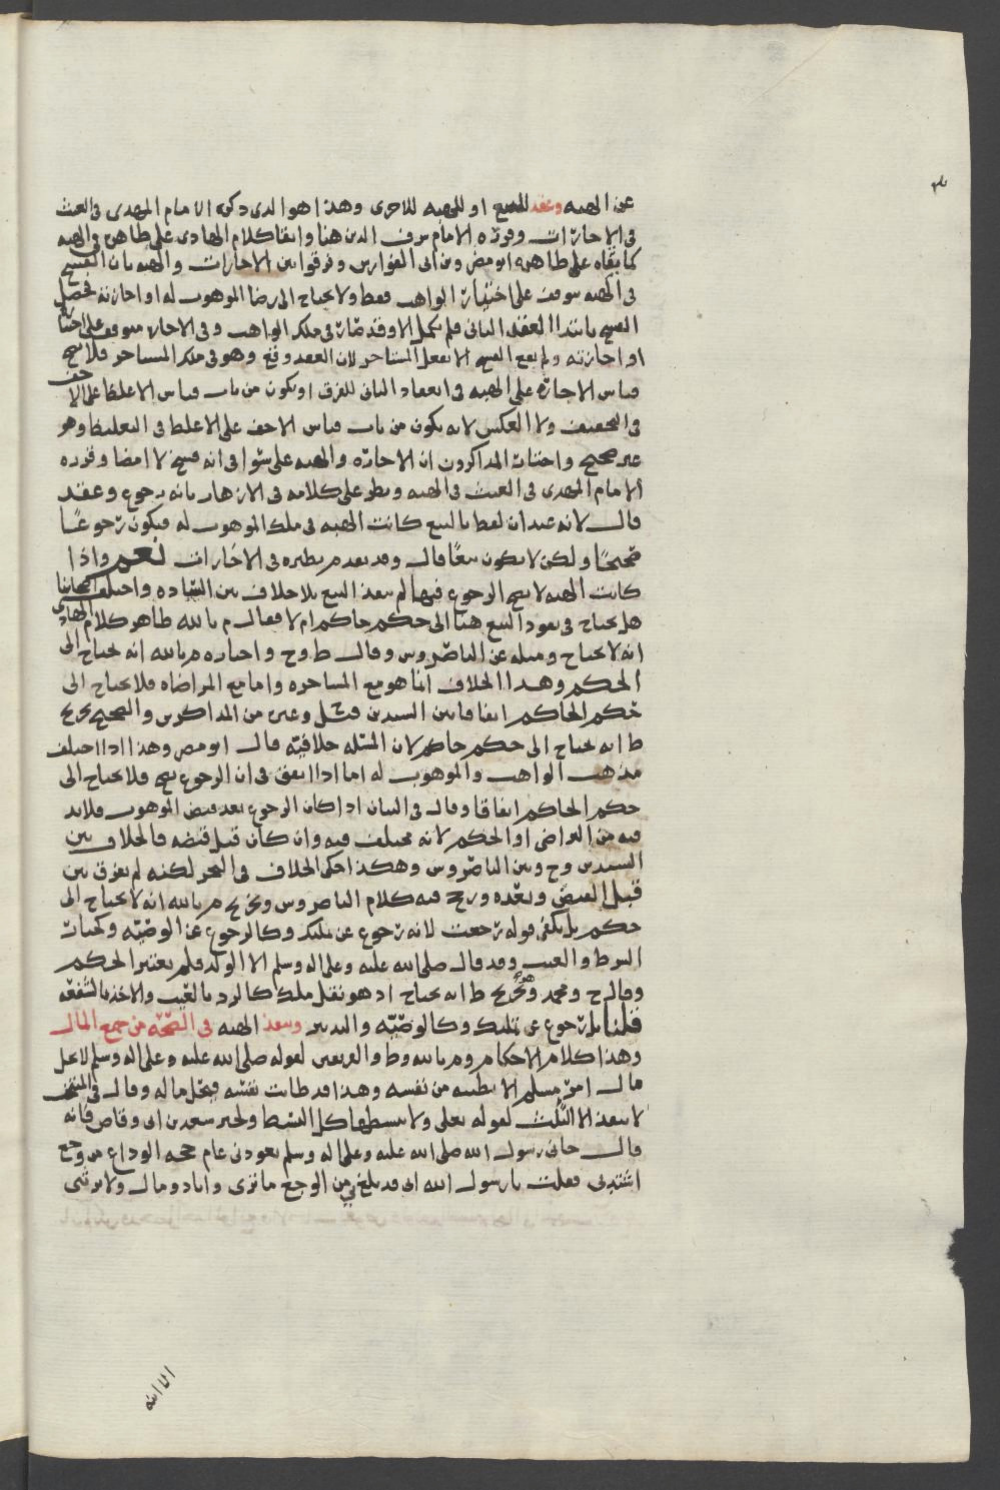 عن الهبه وعقد للبيع او للهبه للاخرى وهذا هو الذى ذكره الامام المهدى فى الغيث
فى الاجازات وقرره الامام شرف الدين هنا وابقا كلام الهادى على ظاهره فى الهبه
كما بقاه على ظاهره ابو مضر وبن ابى الفوارس وفرقوا بين الاجارات والهبه بان الفسخ
فى الهبه موقف على اختيار الواهب فقط ولا يحتاج الى رضا الموهوب له او اجازته فحصل
الفسخ بابتدا العقد الثانى فلم يكمل الا وقد صار فى ملك الواهب وفى الاجاره موقف على
او اجازته ولم يقع الفسخ الا بفعل المستاجر لان العقد وقع وهو فى ملك المستاجر فلا يصح
قياس الاجاره على الهبه فى انعقاد الثانى للفرق او يكون من باب قياس الاغلظ على الاخف
فى التخفيف ولا العكس لانه يكون من باب قياس الاخف على الاغلظ فى التغليظ وهو
غير صحيح واختار المذاكرون ان الاجاره والهبه على سوا فى انه فسخ لا امضا وقرره
الامام المهدى فى الغيث فى الهبه ونظر على كلامه فى الازهار بانه رجوع وعقد
قال لانه عند ان لفظ بالبيع كانت الهبه فى ملك الموهوب له فيكون رجوعًا
صحيحًا ولكن لا يكون بيعًا قال وقد تقدم نظيره فى الاجارات نعم واذا
كانت الهبه لا يصح الرجوع فيها لم ينفذ البيع بلا خلاف بين الساده واختلف اصحابنا
هل يحتاج فى نفوذ البيع هنا الى حكم حاكم ام لا فقال م بالله ظاهر كلام الهادى
انه لا يحتاج ومثله عن الناصر وس وقال ط وح واختاره م بالله انه يحتاج الى
الحكم وهذا الخلاف انما هو مع المشاجره واما مع المراضاه فلا يحتاج الى
حكم الحاكم اتفاقا بين السيدين قيل وغيره من المذاكرين والصحيح تخريج
ط انه يحتاج الى حكم حاكم لان المسئله خلافيه قال ابو مضر وهذا اذا اختلف
مذهب الواهب والموهوب له اما اذا اتفق فى ان الرجوع يصح فلا يحتاج الى
حكم الحاكم اتفاقا وقال فى البيان اذا كان الرجوع بعد قبض الموهوب فلا بد
فيه من التراضى او الحكم لانه مختلف فيه وان كان قبل قبضه فالخلاف بين
السيدين وح وبين الناصر وس وهكذا حكى الخلاف فى البحر لكنه لم يفرق بين
قبل القبض وبعده ورجح فيه كلام الناصر وس وتخريج م بالله انه لا يحتاج الى
حكم بل يكفى قوله رجعت لانه رجوع عن تمليك وكالرجوع عن الوصيه وكخيار
الشرط والعيب وقد قال صلى الله عليه وعلى اله وسلم الا الوالد فلم يعتبر الحكم
وقال ح ومحمد وتخريج ط انه يحتاج اذ هو نقل ملك كالرد بالعيب والاخذ بالشفعه
قلنا بل رجوع عن تمليك وكالوصيه والتدبير وتنفذ الهبه فى الصحه من جميع المال
وهذا كلام الاحكام وم بالله وط والفريقين لقوله صلى الله عليه وعلى اله وسلم لا يحل
مال امرئ مسلم الا بطيبه من نفسه وهذا قد طابت نفسه فيحل ماله وقال فى المنتخب
لا ينفذ الا الثلث لقوله تعلى ولا تبسطها كل البسط ولخبر سعد بن ابى وقاص فانه
قال جانى رسول الله صلى الله عليه وعلى اله وسلم يعودنى عام حجه الوداع من وجع
اشتد بى فقلت يا رسول الله انى قد بلغ بى من الوجع ما ترى وانا ذو مال ولا يرثنى
الا ابنه